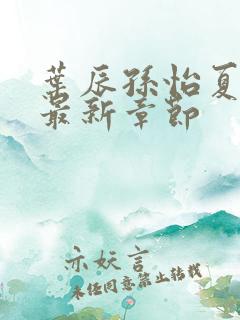 叶辰孙怡夏
最新章节
亦妖言
未经同意禁止转载